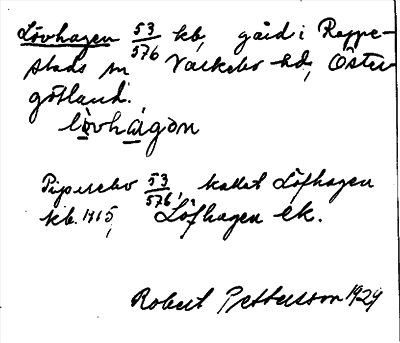 Lövhagen 53/576 kb, gård i Rappe-
stads sn Valkebo hd, Öster
götland.
lövhagən
Pipersebo 53/576, kallat Löfhagen
kb. 1715, Löfhagen ek.
Robert Pettersson 1929